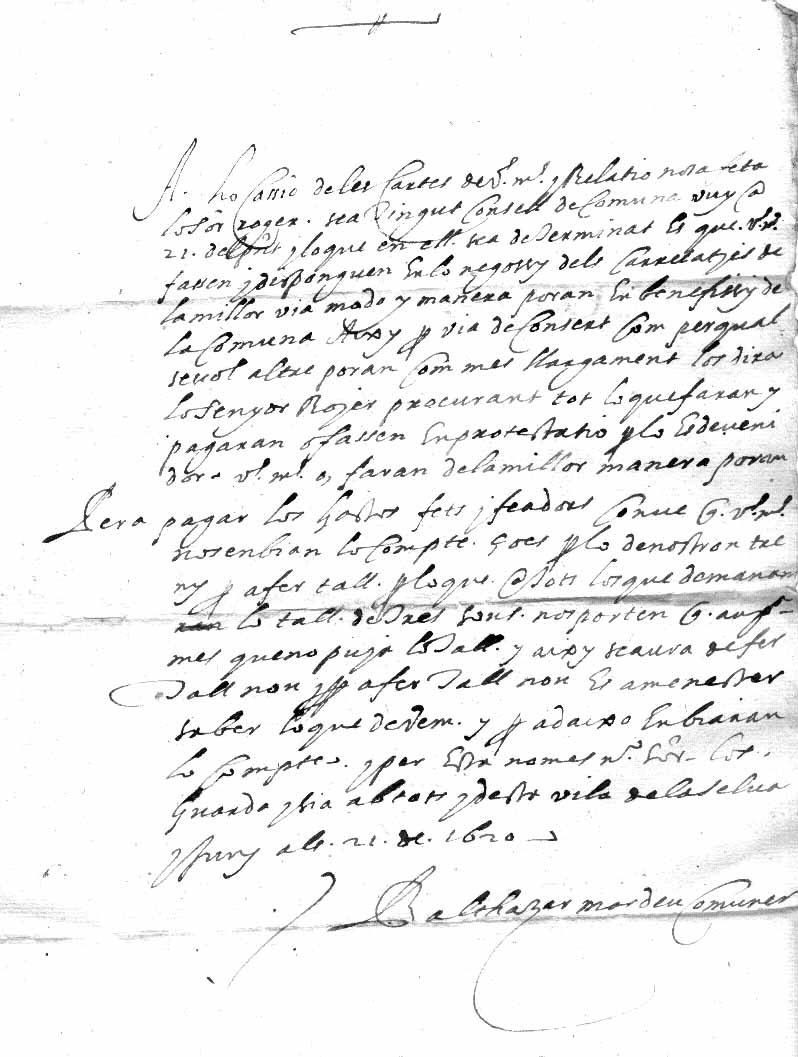 A ho Cassio deles Cartes de v.s m.s y Relatio nosa feta
lo Sor roger. sea Tingut Consell de Comuna vuy a
21. del pnt y loque en ell. sea determinat Es que. v.s m.s
fassen y disponguen En lo negossy dels Carrelatjes de
lamillor via modo y manera poran En benefissy de
la Comuna Axy p via de Consert Com perqual
sevol altre poran Com mes llargament los dira
lo Senyor Rojer procurant tot loquefaran y
pagaran o fassen En protestatio p lo Esdeveni
dor. v.s m.s o, faran delamillor manera poran
Pera pagar los gastos fets y feadors Conve q. v.s m.s
nosenbian lo Compte. Goes p lo denostron tre
ny p afer tall. p loque. Tots losque demanam
lo tall. de Tres sous. nos porten q.
mes queno puja lo Tall. y axy seaura defer
Tall nou y p afer Tall nou Es amenester
saber loque devem. y p adaixo Enbiaran
lo Compte. y per Esta nomes n.e Sor. los.
Guarde y sia abtots y desta vila de la Selva
y Juny als. 21. de. 1620
Balthazar mardeu Comuner